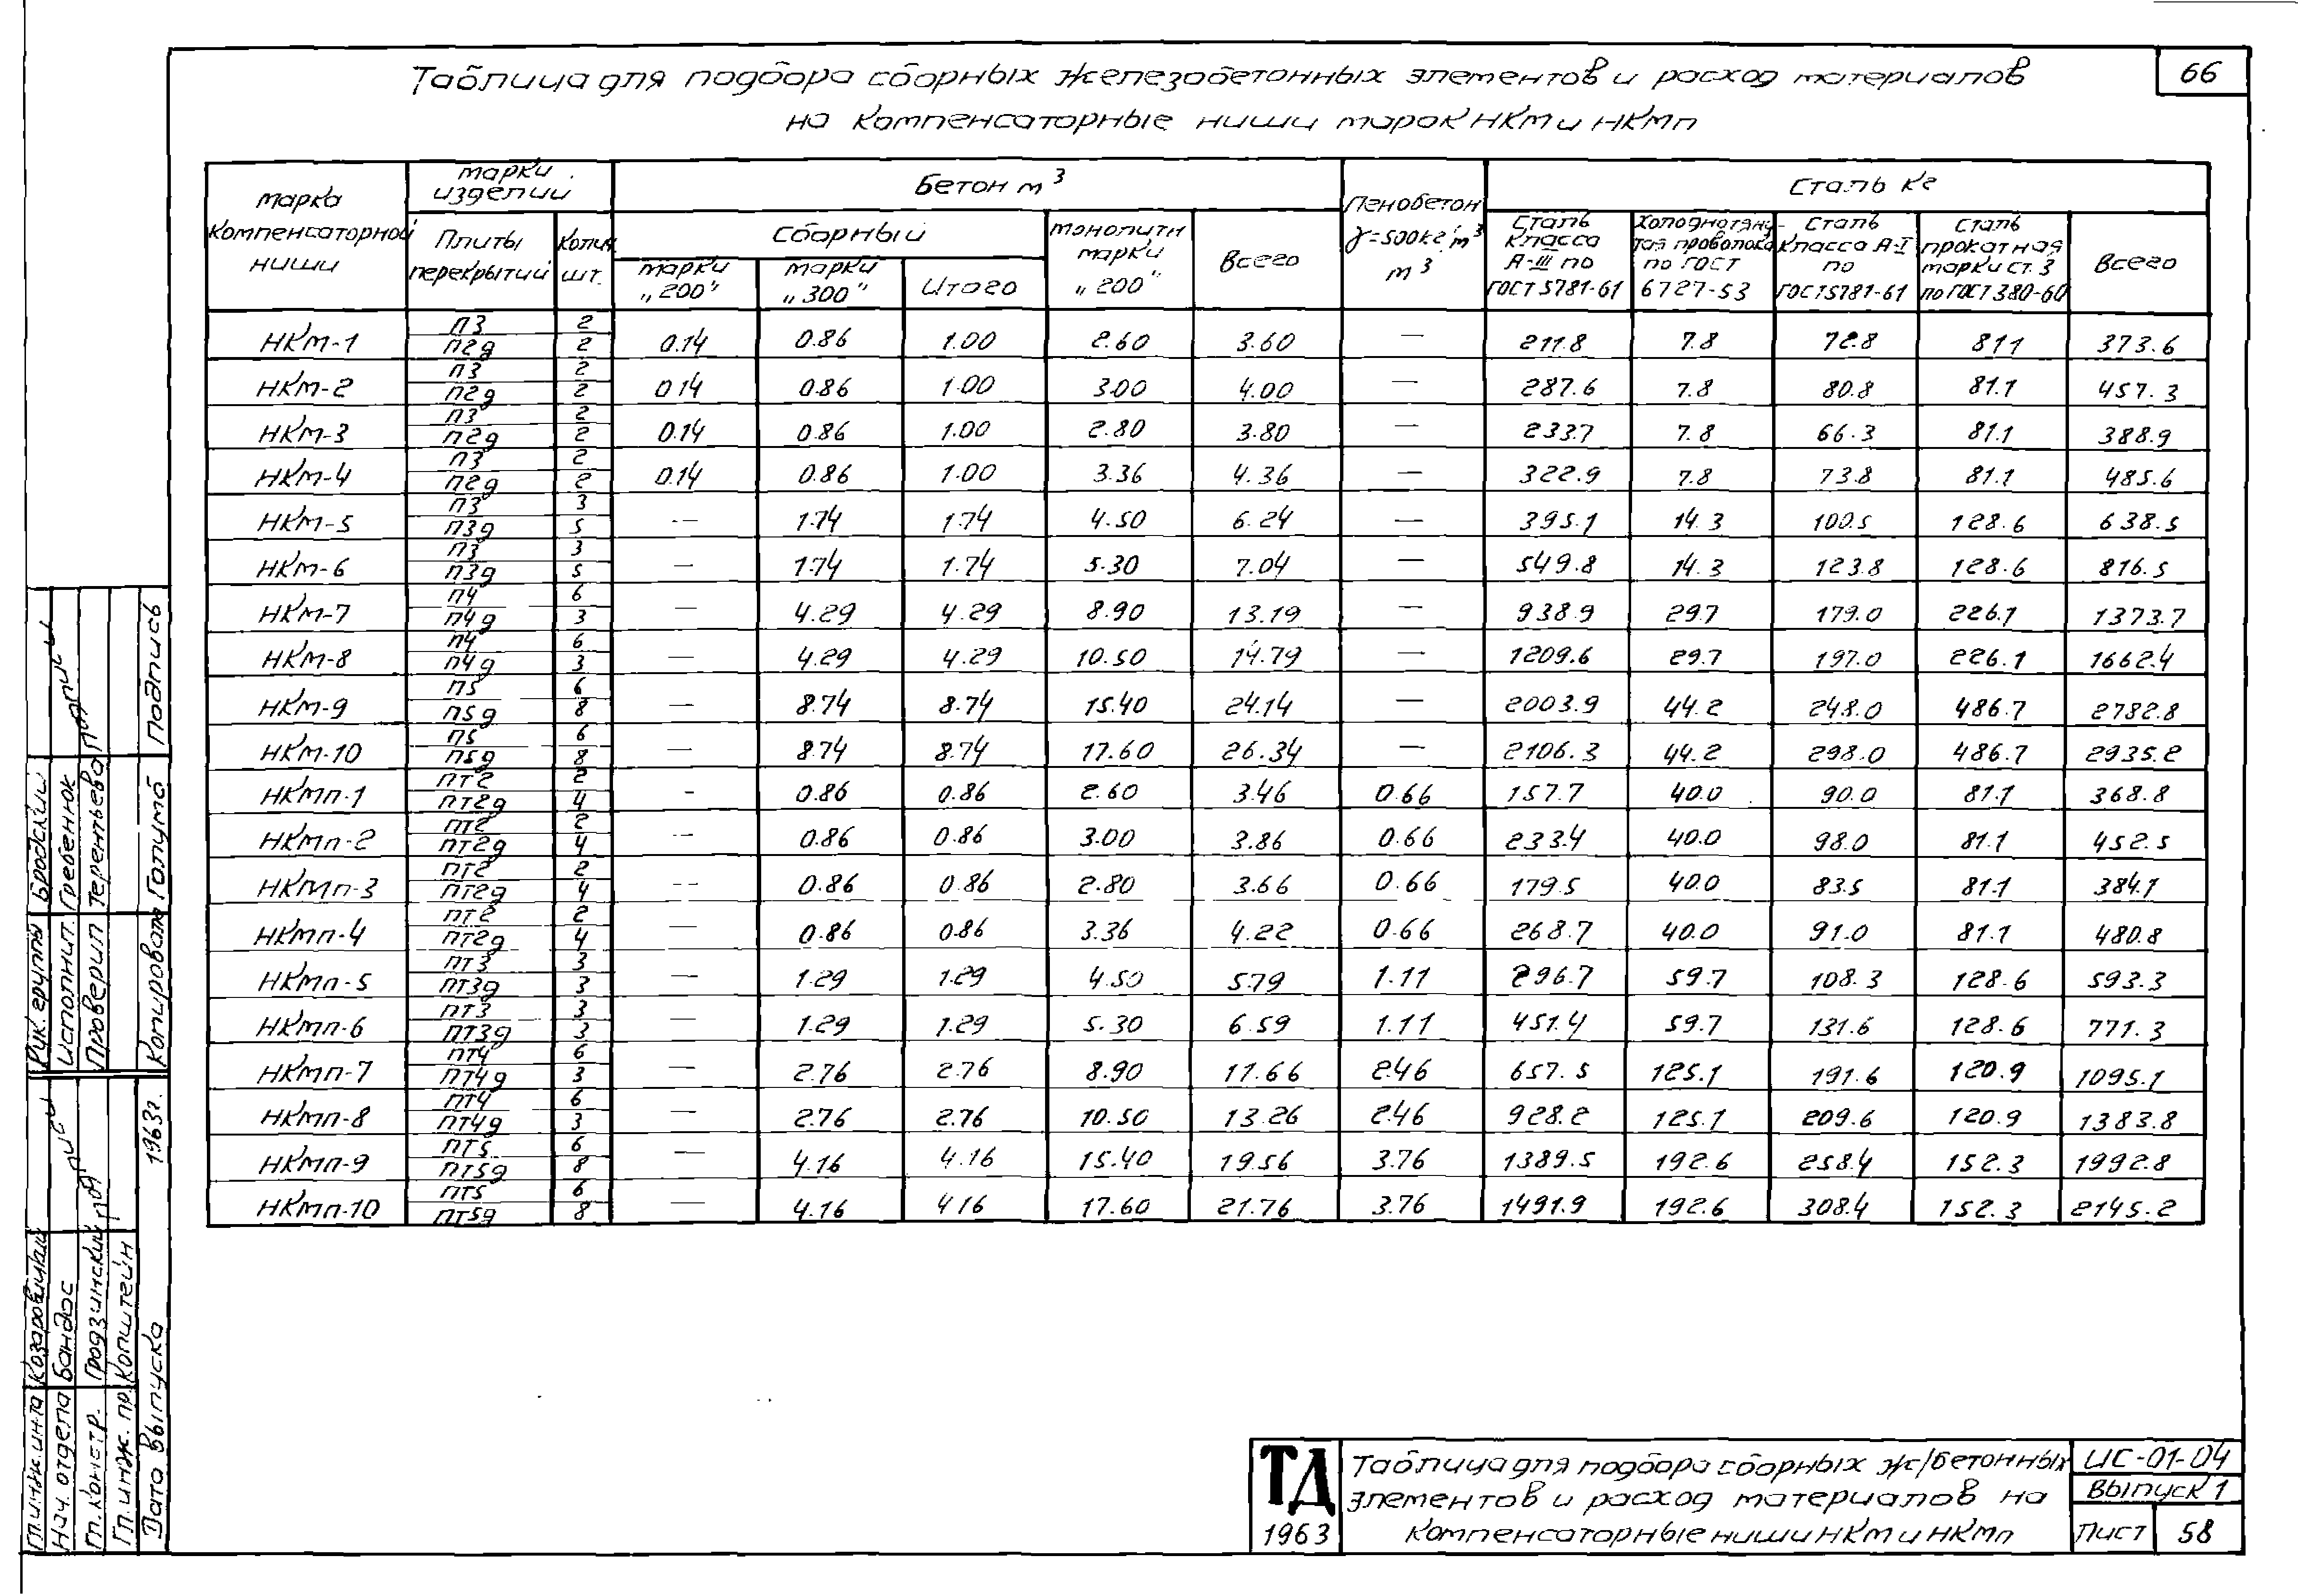 66
Таблица для подбора сборных железобетонных элементов и расход материалов
на компенсаторные ниши марок НКМ и НКМп
Марка компенсаторной ниши
Марки изделий
Плиты перекрытий
Колич. шт.
Бетон м³
Сборный
Марки „200"
Марки „300"
Итого
Монолитн марки „200"
Всего
Пенобетон γ=500кг/м³ м³
Сталь кг
Сталь класса А-III по ГОСТ 5781-61
Холоднотянутая проволока по ГОСТ 6727-53
Сталь класса А-I по ГОСТ 5781-61
Сталь прокатная марки ст. 3 по ГОСТ 380-60
Всего
НКМ-1 П3 2 П2д 2 0.14 0.86 1.00 2.60 3.60 — 211.8 7.8 72.8 811 373.6
НКМ-2 П3 2 П2д 2 0.14 0.86 1.00 3.00 4.00 — 287.6 7.8 80.8 81.1 457.3
НКМ-3 П3 2 П2д 2 0.14 0.86 1.00 2.80 3.80 — 233.7 7.8 66.3 81.1 388.9
НКМ-4 П3 2 П2д 2 0.14 0.86 1.00 3.36 4.36 — 322.9 7.8 73.8 81.1 485.6
НКМ-5 П3 3 П3д 5 — 1.74 1.74 4.50 6.24 — 395.1 14.3 100.5 128.6 638.5
НКМ-6 П3 3 П3д 5 — 1.74 1.74 5.30 7.04 — 549.8 14.3 123.8 128.6 816.5
НКМ-7 П4 6 П4д 3 — 4.29 4.29 8.90 13.19 — 938.9 29.7 179.0 226.1 1373.7
НКМ-8 П4 6 П4д 3 — 4.29 4.29 10.50 14.79 — 1209.6 29.7 197.0 226.1 1662.4
НКМ-9 П5 6 П5д 8 — 8.74 8.74 15.40 24.14 — 2003.9 44.2 248.0 486.7 2782.8
НКМ-10 П5 6 П5д 8 — 8.74 8.74 17.60 26.34 — 2106.3 44.2 298.0 486.7 2935.2
НКМп-1 ПТ2 2 ПТ2д 4 - 0.86 0.86 2.60 3.46 0.66 157.7 40.0 90.0 81.1 368.8
НКМп-2 ПТ2 2 ПТ2д 4 — 0.86 0.86 3.00 3.86 0.66 233.4 40.0 98.0 81.1 452.5
НКМп-3 ПТ2 2 ПТ2д 4 — 0.86 0.86 2.80 3.66 0.66 179.5 40.0 83.5 81.1 384.1
НКМп-4 ПТ2 2 ПТ2д 4 — 0.86 0.86 3.36 4.22 0.66 268.7 40.0 91.0 81.1 480.8
НКМп-5 ПТ3 3 ПТ3д 3 — 1.29 1.29 4.50 5.79 1.11 296.7 59.7 108.3 128.6 593.3
НКМп-6 ПТ3 3 ПТ3д 3 — 1.29 1.29 5.30 6.59 1.11 451.4 59.7 131.6 128.6 771.3
НКМп-7 ПТ4 6 ПТ4д 3 — 2.76 2.76 8.90 11.66 2.46 657.5 125.1 191.6 120.9 1095.1
НКМп-8 ПТ4 6 ПТ4д 3 — 2.76 2.76 10.50 13.26 2.46 928.2 125.1 209.6 120.9 1383.8
НКМп-9 ПТ5 6 ПТ5д 8 — 4.16 4.16 15.40 19.56 3.76 1389.5 192.6 258.4 152.3 1992.8
НКМп-10 ПТ5 6 ПТ5д 8 — 4.16 4.16 17.60 21.76 3.76 1491.9 192.6 308.4 152.3 2145.2
Рук. группы Бродский
Исполнил. Гребенюк
Проверил Терентьева
подписи
Копировала Голумб Подпись
Гл. инж. ин-та Казаровицкий
Нач. отдела Бандос
Гл. констр. Гродзинский
Гл. инж. пр. Копштейн
подписи
Дата выпуска 1963г.
ТД
1963
Таблица для подбора сборных ж/бетонных
элементов и расход материалов на
компенсаторные ниши НКМ и НКМп
ИС-01-04
Выпуск 1
Лист 58